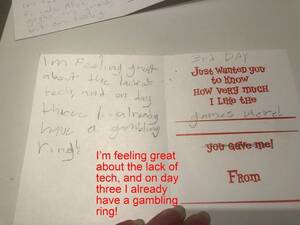 I'm Feeling great
about the lack of
tech, and on day
three I already
have a gambling
ring!
3rd DAY
Just Wanted you
to Know
How very much
I Like the
games here!
you gave me!
From
I'm feeling great
about the lack of
tech, and on day
three I already
have a gambling
ring!